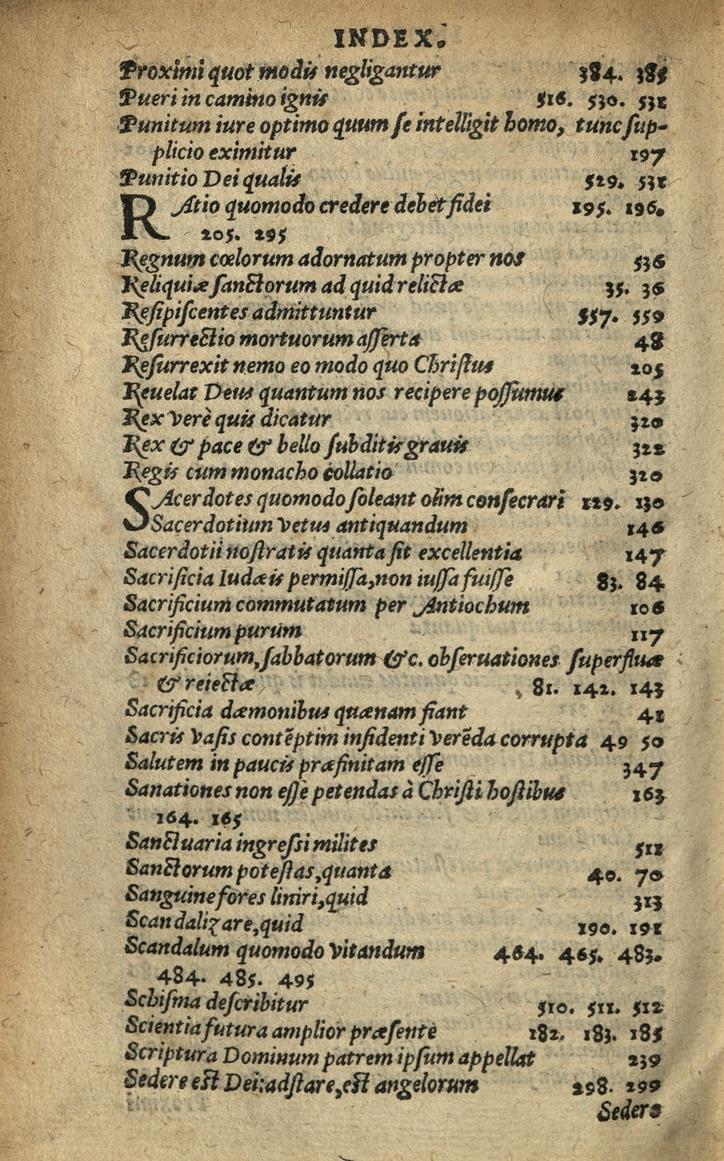 INDEX.
Proximi quot modis negligantur 384. 385
Pueri in camino ignis 516. 530. 531
Punitum iure optimo quum se intelligit homo, tunc sup-
plicio eximitur 197
Punitio Dei qualis 529. 531
RAtio quomodo credere debet fidei 195. 196.
205. 295
Regnum cœlorum adornatum propter nos 536
Reliquiæ sanctorum ad quid relictæ 35. 36
Resipiscentes admittuntur 557. 559
Resurrectio mortuorum asserta 48
Resurrexit nemo eo modo quo Christus 205
Reuelat Deus quantum nos recipere possumus 243
Rex verè quis dicatur 320
Rex & pace & bello subditis grauis 322
Regis cum monacho collatio 320
SAcerdotes quomodo soleant olim consecrari 129. 130
Sacerdotium vetus antiquandum 146
Sacerdotii nostratis quanta sit excellentia 147
Sacrificia Iudæis permissa, non iussa fuisse 83. 84
Sacrificium commutatum per Antiochum 106
Sacrificium purum 117
Sacrificiorum, sabbatorum &c. obseruationes superfluæ
& reiectæ 81. 142. 143
Sacrificia dæmonibus quænam fiant 41
Sacris vasis contẽptim insidenti verẽda corrupta 49 50
Salutem in paucis præfinitam esse 347
Sanationes non esse petendas à Christi hostibus 163
164. 165
Sanctuaria ingressi milites 512
Sanctorum potestas, quanta 40. 70
Sanguine fores liniri, quid 313
Scandalizare, quid 190. 191
Scandalum quomodo vitandum 464. 465. 483.
484. 485. 495
Schisma describitur 510. 511. 512
Scientia futura amplior præsente 182. 183. 185
Scriptura Dominum patrem ipsum appellat 239
Sedere est Dei: adstare, est angelorum 298. 299
Sedere